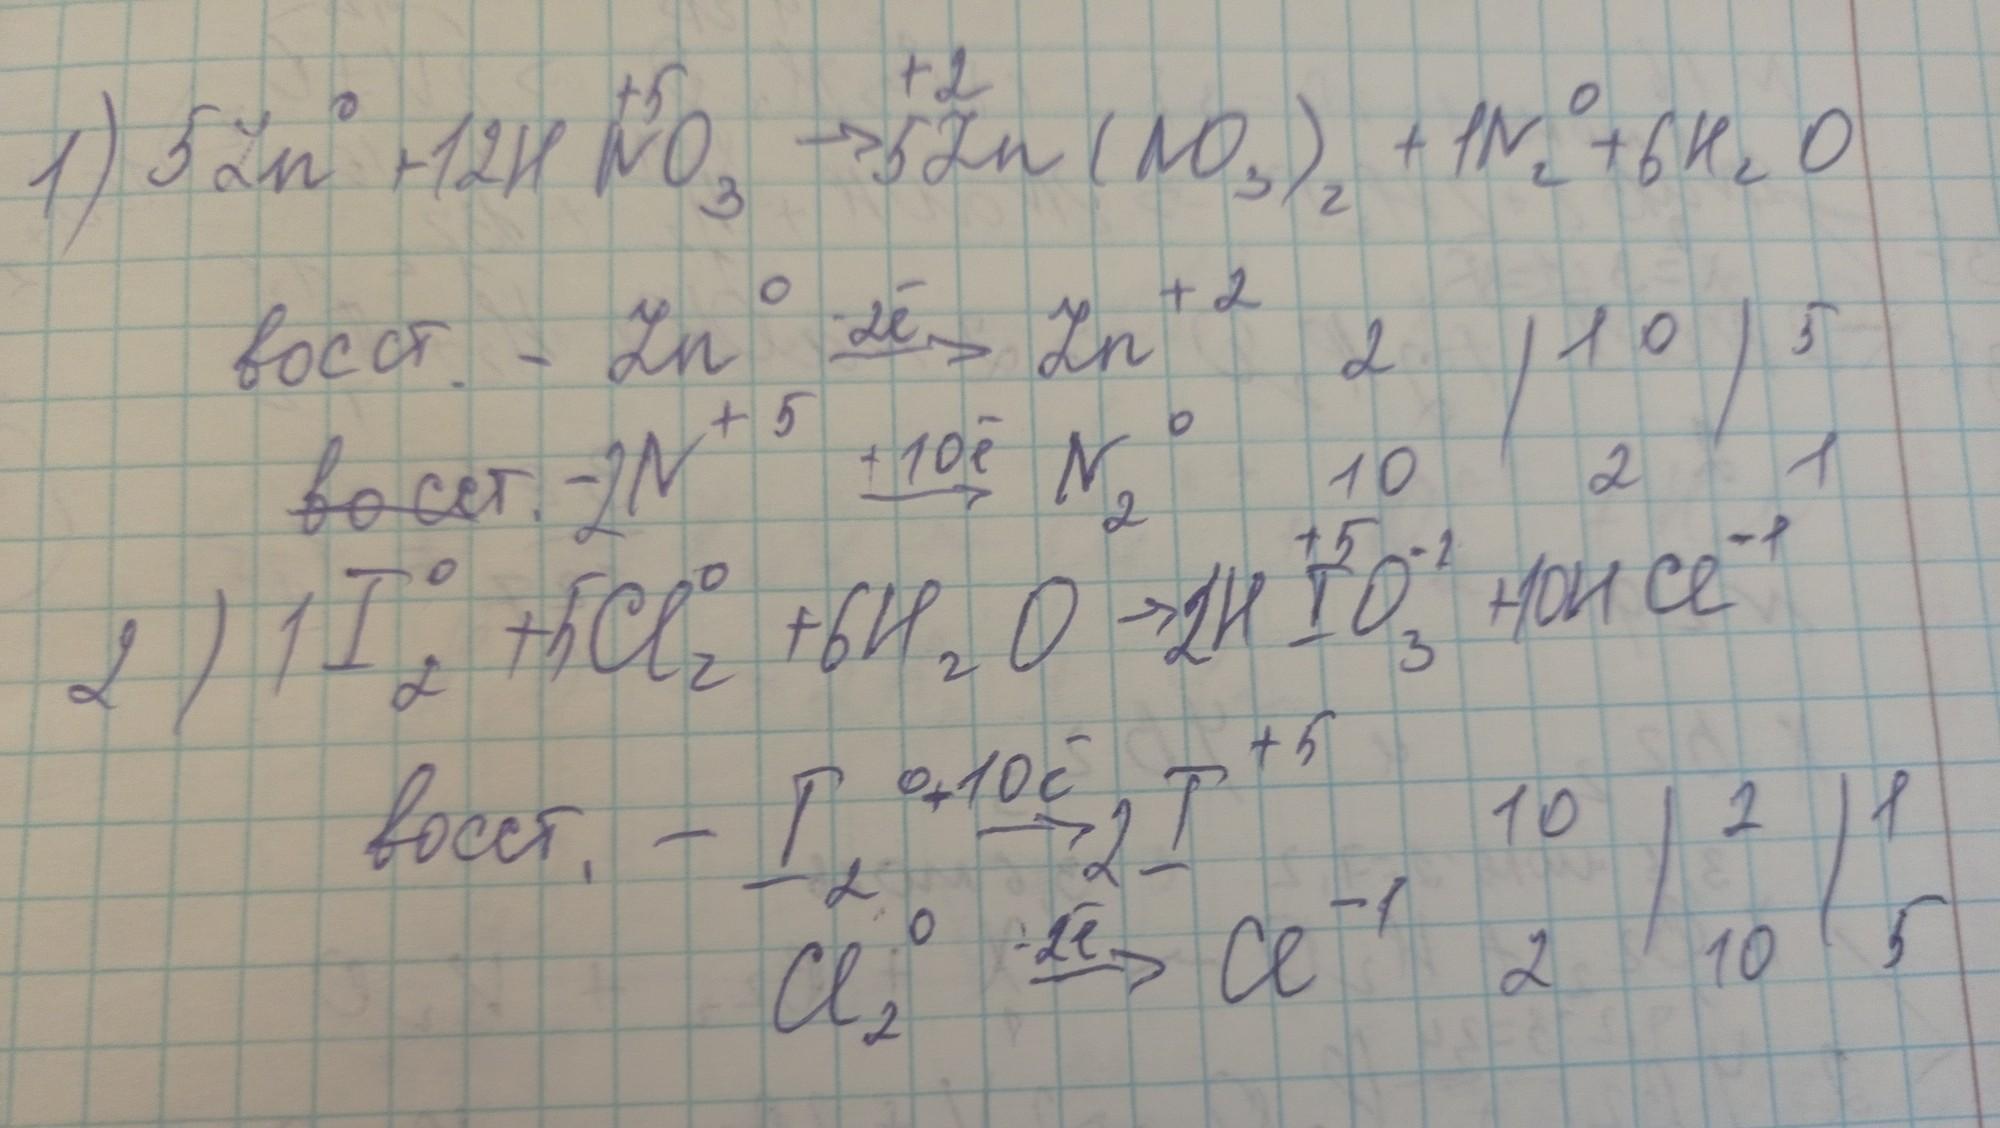 1) 5Zn⁰ + 12HN⁺⁵O₃ → 5Zn⁺²(NO₃)₂ + 1N₂⁰ + 6H₂O
восст. - Zn⁰ -2ē→ Zn⁺² 2 | 10 | 5
восст. - 2N⁺⁵ +10ē→ N₂⁰ 10 2 1
2) 1I₂⁰ + 5Cl₂⁰ + 6H₂O → 2HI⁺⁵O₃⁻² + 10HCl⁻¹
восст. - I₂⁰ +10ē→ 2I⁺⁵ 10 | 2 | 1
Cl₂⁰ -2ē→ Cl⁻¹ 2 10 5